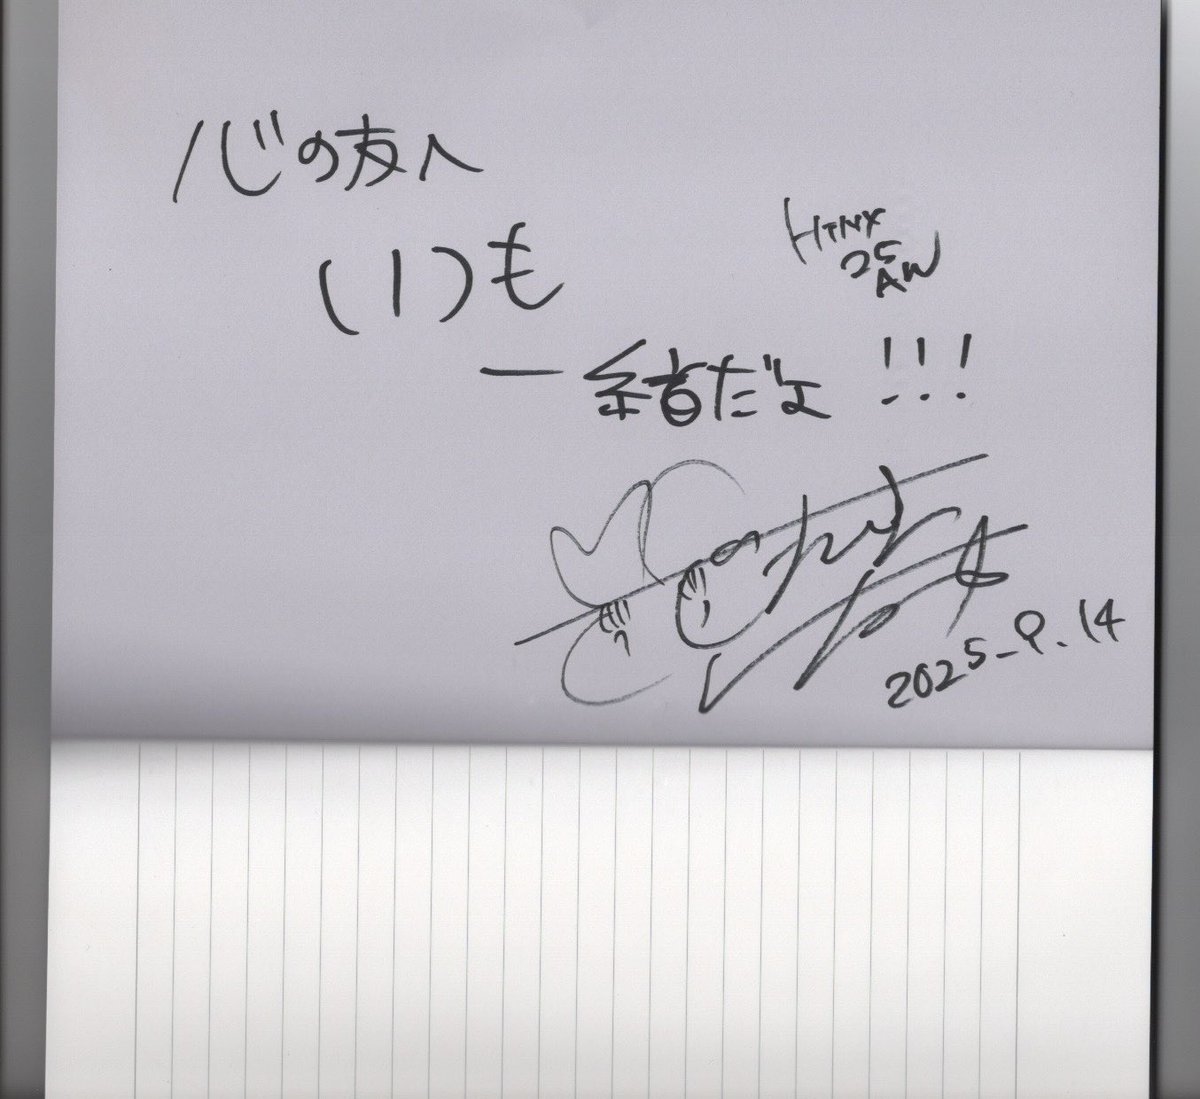 心の友へ
いつも
一緒だよ!!!
HTNX
25
AW
2025-9.14